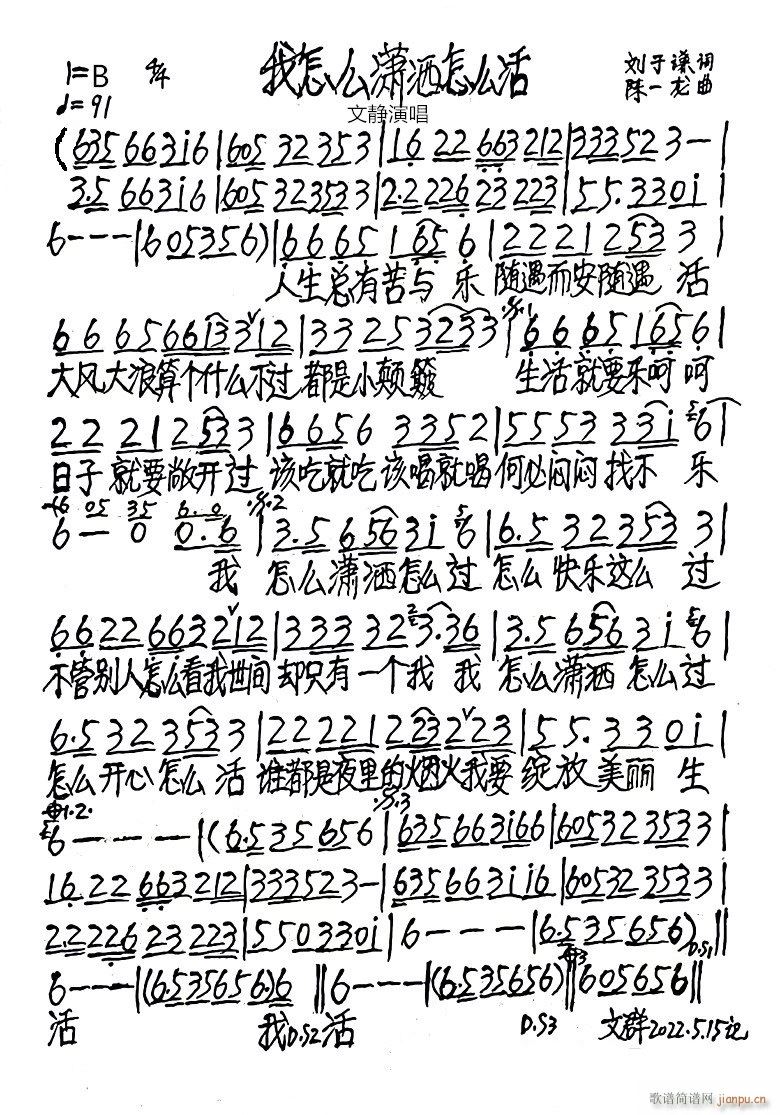 1=B 4/4 我怎么潇洒怎么活 刘子谦词
♩=91 陈一龙曲
文静演唱
(635 6631̇6|605 32353|16 22 663212|333523-|
3.5 6631̇6|605323533|2.2 226 23 223|55.3301̇|
6---|605356)|6665 1656|22212533 3|
人生总有苦与乐 随遇而安随遇 活
66656613312|332532 33|6665 1656|
大风大浪算个什么不过 都是小颠簸 生活就要乐呵呵
22 212533|6656 3352|5553 331̇6|
日子就要敞开过 该吃就吃该喝就喝何必闷闷找不 乐
6 05 35 6.0
6-0 0.6|3.5 65631̇6|6.5 323533|
我 怎么潇洒怎么过 怎么快乐这么 过
6622663212|333 323.36|3.5 65631̇6|
不管别人怎么看我世间 却只有一个我 我 怎么潇洒 怎么过
6.5323533|222212 23223|55.3301̇|
怎么开心怎么 活 谁都是夜里的烟火我要 绽放美丽 生
6---|(6.535656|6356631̇66|605323533|
16.22663212|333523-|6356631̇1̇6|605323533|
2.2226 23 223|5503301̇|6---|(6.535656)D.S1||
6---|(6.535656.)6||6---|(6.535656)||605656||
活 我D.S2活 D.S3 文群2022.5.15记
歌谱简谱网 jianpu.cn